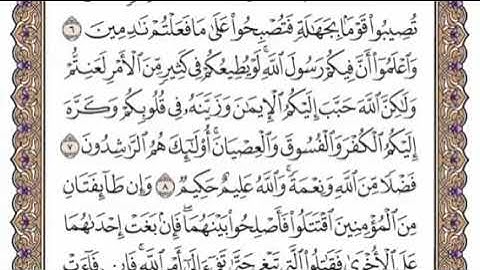 تُصِيبُوا۟ قَوْمًۢا بِجَهَـٰلَةٍ فَتُصْبِحُوا۟ عَلَىٰ مَا فَعَلْتُمْ نَـٰدِمِينَ ٦
وَٱعْلَمُوٓا۟ أَنَّ فِيكُمْ رَسُولَ ٱللَّهِ ۚ لَوْ يُطِيعُكُمْ فِى كَثِيرٍ مِّنَ ٱلْأَمْرِ لَعَنِتُّمْ
وَلَـٰكِنَّ ٱللَّهَ حَبَّبَ إِلَيْكُمُ ٱلْإِيمَـٰنَ وَزَيَّنَهُۥ فِى قُلُوبِكُمْ وَكَرَّهَ
إِلَيْكُمُ ٱلْكُفْرَ وَٱلْفُسُوقَ وَٱلْعِصْيَانَ ۚ أُو۟لَـٰٓئِكَ هُمُ ٱلرَّٰشِدُونَ ٧
فَضْلًا مِّنَ ٱللَّهِ وَنِعْمَةً ۚ وَٱللَّهُ عَلِيمٌ حَكِيمٌ ٨ وَإِن طَآئِفَتَانِ
مِنَ ٱلْمُؤْمِنِينَ ٱقْتَتَلُوا۟ فَأَصْلِحُوا۟ بَيْنَهُمَا ۖ فَإِنۢ بَغَتْ إِحْدَىٰهُمَا
عَلَى ٱلْأُخْرَىٰ فَقَـٰتِلُوا۟ ٱلَّتِى تَبْغِى حَتَّىٰ تَفِىٓءَ إِلَىٰٓ أَمْرِ ٱللَّهِ ۚ فَإِن فَآءَتْ